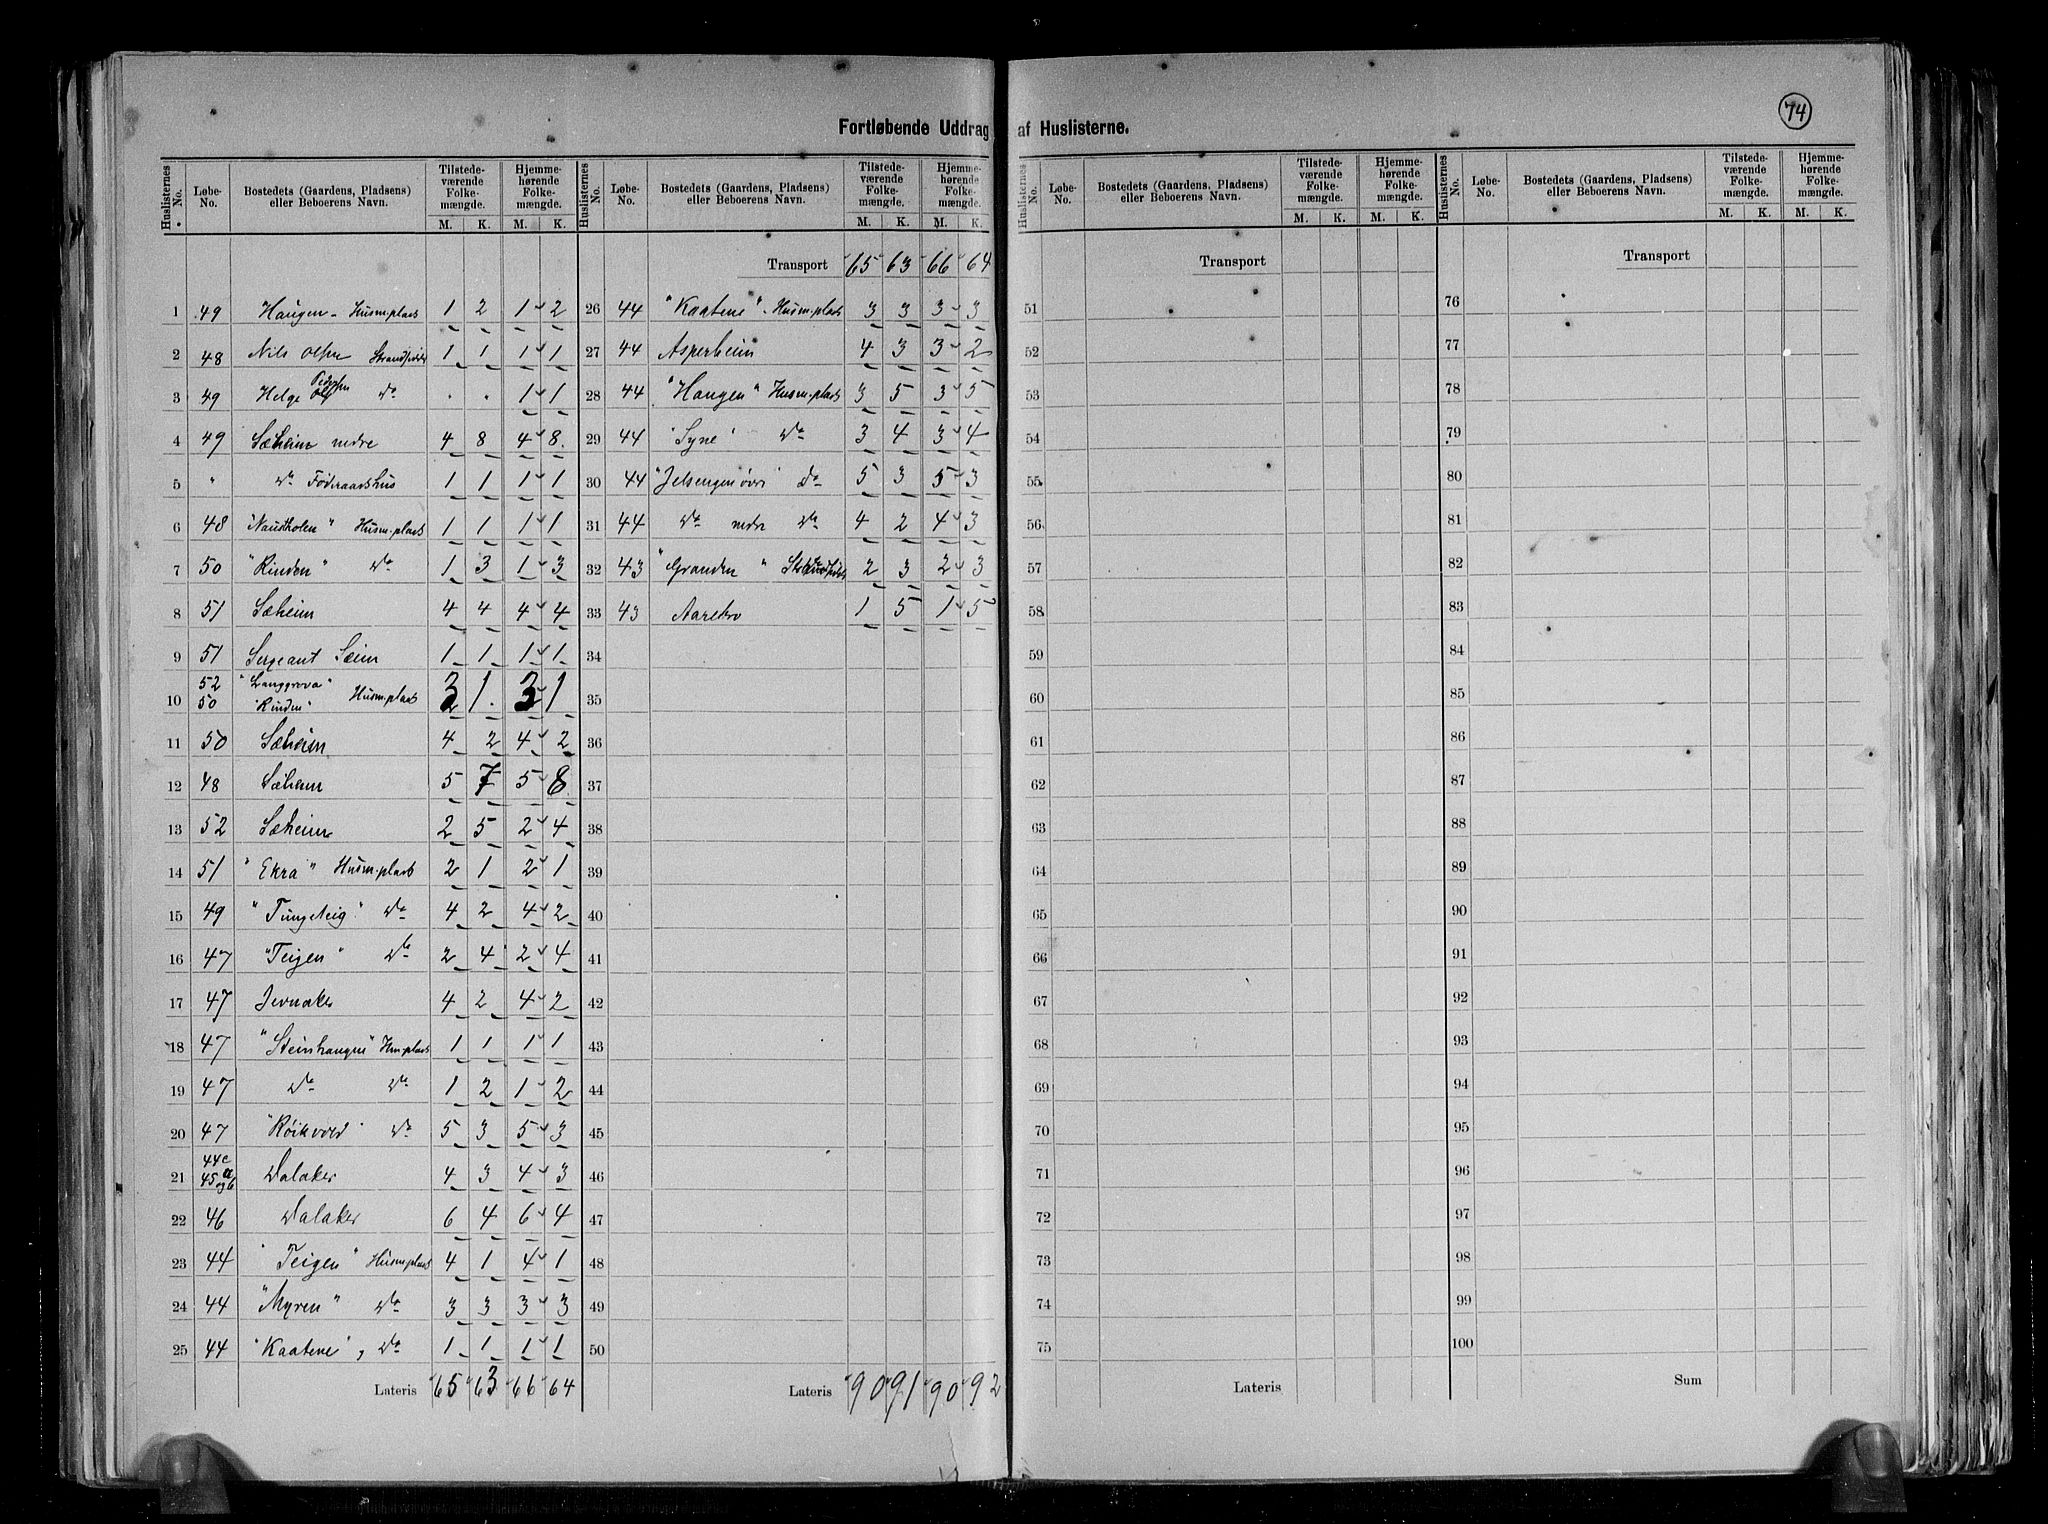 74
Fortløbende Uddrag af Huslisterne.
Huslisternes No. | Løbe-No. | Bostedets (Gaardens, Pladsens) eller Beboerens Navn. | Tilstedeværende Folkemængde. M. K. | Hjemmehørende Folkemængde. M. K.
1 49 Haugen - Husm.plads 1 2 1 2
2 48 Nils Olsen Strandsidder 1 1 1 1
3 49 Helge Pedersen do . . 1 1
4 49 Sæheim nedre 4 8 4 8
5 " do Føderaadshus 1 1 1 1
6 48 "Naustholen" Husm.plads 1 1 1 1
7 50 "Rinden" do 1 3 1 3
8 51 Sæheim 4 4 4 4
9 51 Sergeant Seim 1 1 1 1
10 52 50 "Langgrova" "Rinden" Husm.plads 3 1 3 1
11 50 Sæheim 4 2 4 2
12 48 Sæheim 5 7 5 8
13 52 Sæheim 2 5 2 4
14 51 "Ekra" Husm.plads 2 1 2 1
15 49 "Tungeteig" do 4 2 4 2
16 47 "Teigen" do 2 4 2 4
17 47 Jevnaker 4 2 4 2
18 47 "Steinhaugen" Hm.plads 1 1 1 1
19 47 do do 1 2 1 2
20 47 "Røikvold" do 5 3 5 3
21 44c 45a og b Dalaker 4 3 4 3
22 46 Dalaker 6 4 6 4
23 44 "Teigen" Husm.plads 4 1 4 1
24 44 "Myren" do 3 3 3 3
25 44 "Kaatene", do 1 1 1 1
Lateris 65 63 66 64
Huslisternes No. | Løbe-No. | Bostedets (Gaardens, Pladsens) eller Beboerens Navn. | Tilstedeværende Folkemængde. M. K. | Hjemmehørende Folkemængde. M. K.
Transport 65 63 66 64
26 44 "Kaatene" Husm.plads 3 3 3 3
27 44 Asperheim 4 3 3 2
28 44 "Haugen" Husm.plads 3 5 3 5
29 44 "Syne" do 3 4 3 4
30 44 "Jelsengen øvr" do 5 3 5 3
31 44 do nedre do 4 2 4 3
32 43 "Granden" Strandsidder 2 3 2 3
33 43 Aarekro 1 5 1 5
34
35
36
37
38
39
40
41
42
43
44
45
46
47
48
49
50
Lateris 90 91 90 92
Huslisternes No. | Løbe-No. | Bostedets (Gaardens, Pladsens) eller Beboerens Navn. | Tilstedeværende Folkemængde. M. K. | Hjemmehørende Folkemængde. M. K.
Transport
51
52
53
54
55
56
57
58
59
60
61
62
63
64
65
66
67
68
69
70
71
72
73
74
75
Lateris
Huslisternes No. | Løbe-No. | Bostedets (Gaardens, Pladsens) eller Beboerens Navn. | Tilstedeværende Folkemængde. M. K. | Hjemmehørende Folkemængde. M. K.
Transport
76
77
78
79
80
81
82
83
84
85
86
87
88
89
90
91
92
93
94
95
96
97
98
99
100
Sum